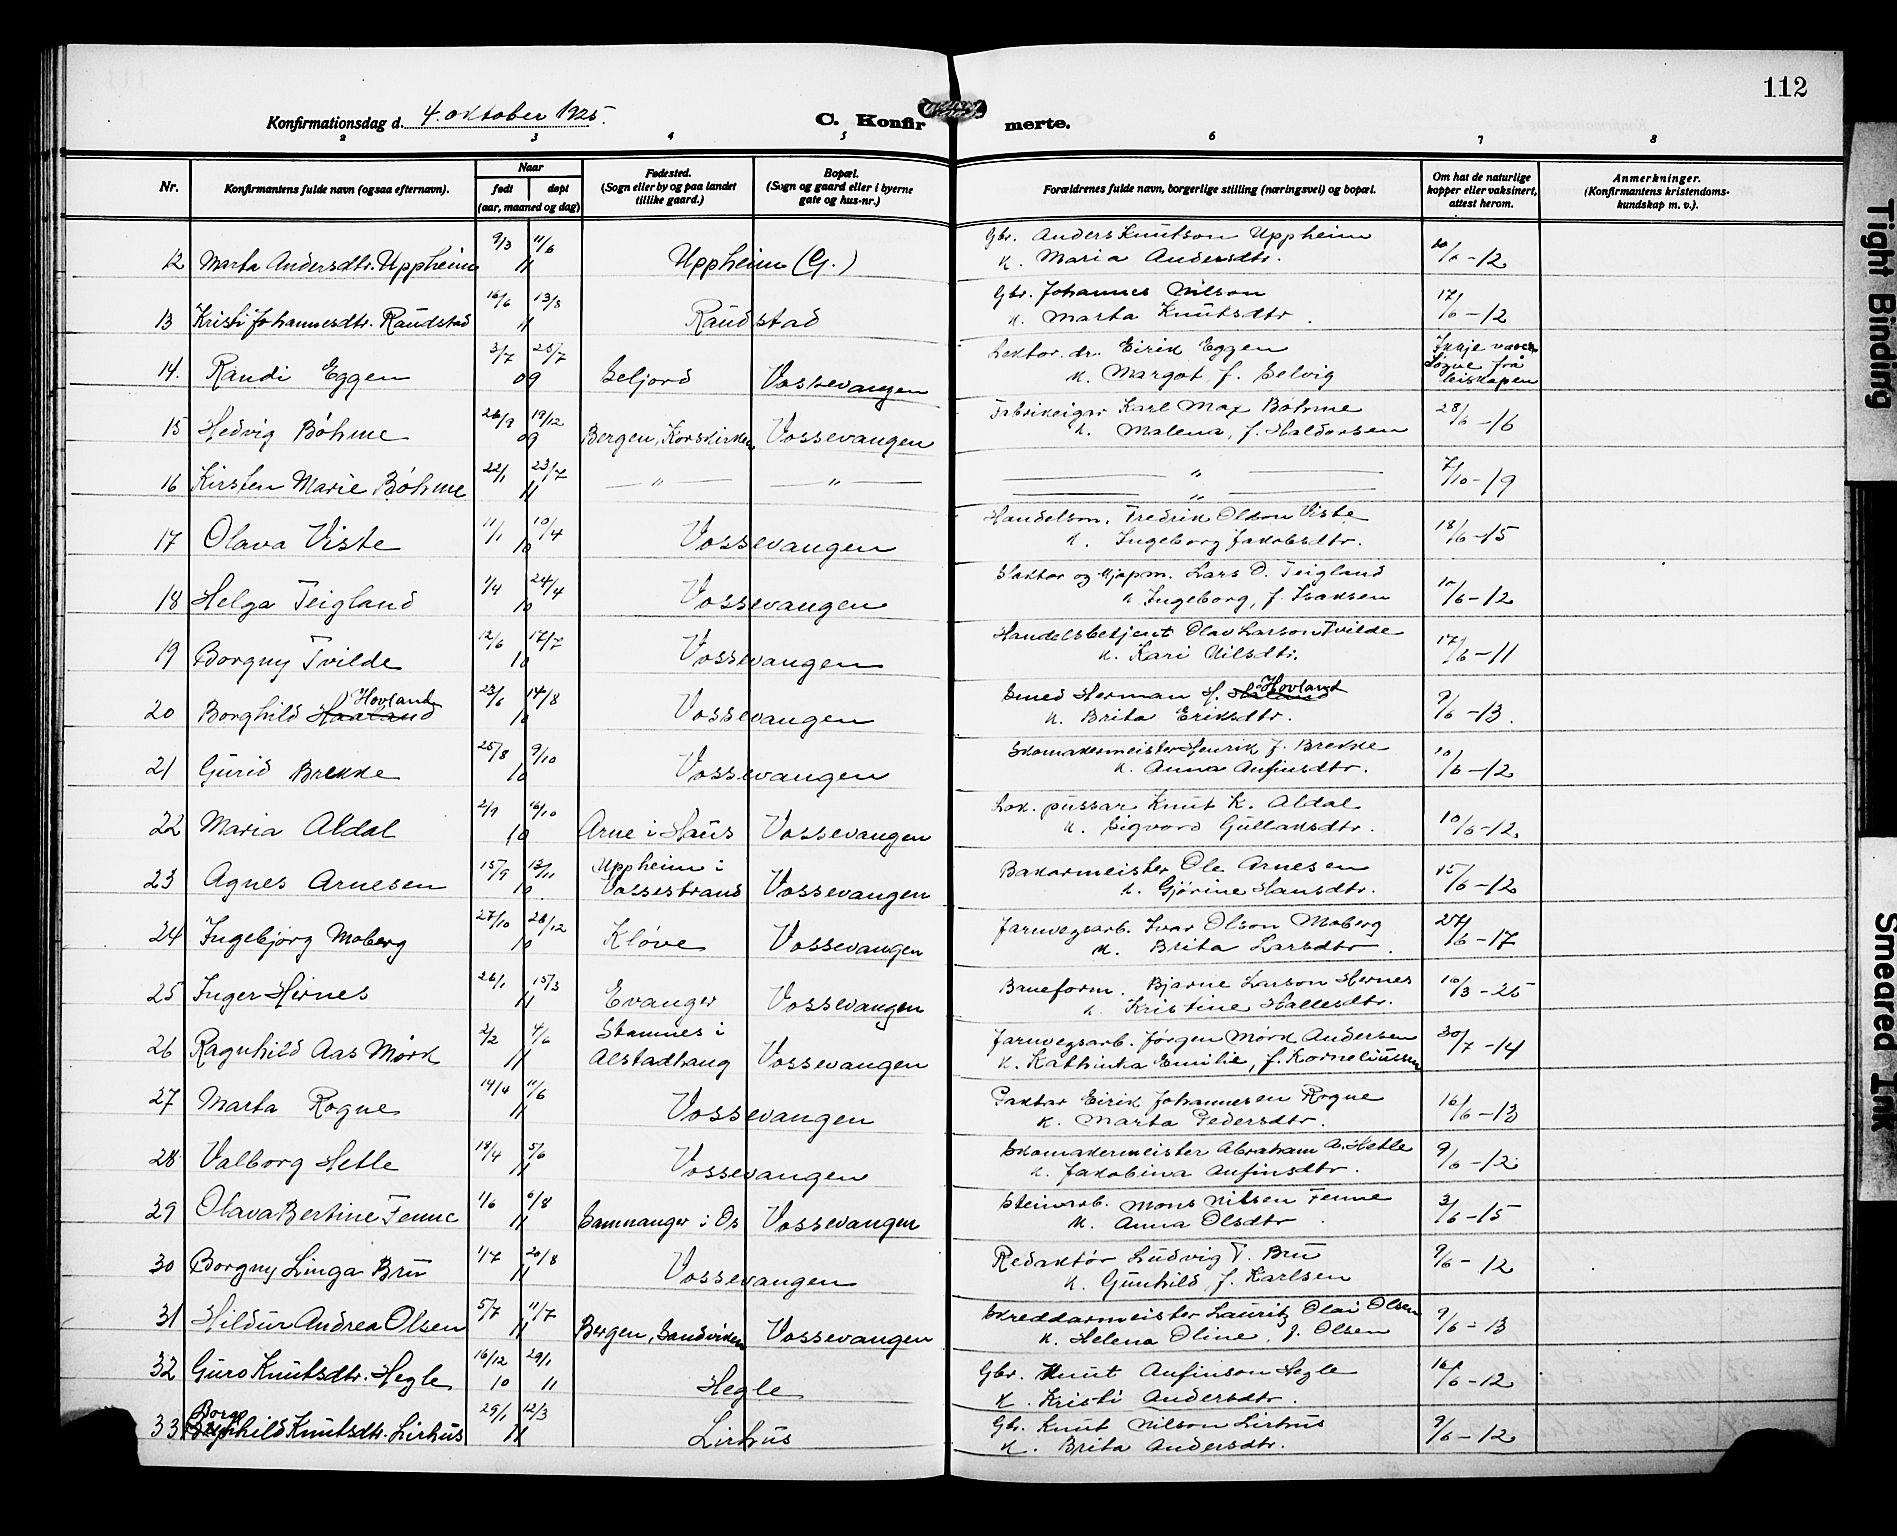 112
Konfirmationsdag d. 4. oktober 1925.
C. Konfir merte.
2 3 4 5 6 7 8
Nr.
Konfirmantens fulde navn (ogsaa efternavn).
Naar
født døpt
(aar, maaned og dag)
Fødested.
(Sogn eller by og paa landet
tillike gaard.)
Bopæl.
(Sogn og gaard eller i byerne
gate og hus-nr.)
Forældrenes fulde navn, borgerlige stilling (næringsvei) og bopæl.
Om hat de naturlige
kopper eller vaksinert,
attest herom.
Anmerkninger.
(Konfirmantens kristendoms-
kundskap m. v.).
12 Marta Andersdtr. Uppheim 9/3 11/6 11 Uppheim (G.) Gbr. Anders Knutson Uppheim
K. Maria Andersdtr. /6-12
13 Kristi Johannesdtr. Raudstad 16/6 13/8 11 Raudstad Gbr. Johannes Nilson
K. Marta Knutsdtr. 17/6-12
14. Randi Eggen 3/7 25/7 09 Seljord Vossevangen Lektor dr. Eirik Eggen
K. Margot f. Selvig Ikkje
15 Hedvig Bøhme 26/9 19/12 09 Bergen, Korskirken Vossevangen Fabrikeigar Karl Max Bøhme
K. Malena, f. Haldorsen 28/6-16
16 Kirsten Marie Bøhme 22/1 23/7 11 — " — — " — — " —
— " — 7/10-19
17 Olava Viste 11/1 10/4 10 Vossevangen Handelsm. Fredrik Olson Viste
K. Ingeborg Jakobsdtr. 18/6-15
18 Helga Teigland 1/4 24/4 10 Vossevangen Slaktar og kjøpm. Lars O. Teigland
K Ingeborg, f. Isaksen /6-12
19 Borgny Tvilde 12/6 17/7 10 Vossevangen Handelsbetjent Olav Larson Tvilde
K. Kari Nilsdtr. 17/6-11
20 Borghild Haaland Hovland 23/6 14/8 10 Vossevangen Smed Herman H. Hovland
K. Brita Eriksdtr. 9/6-13.
21 Gurid Brekke 25/8 9/10 10 Vossevangen Skomakermeister Henrik J. Brekke
K. Anna Anfinsdtr. 10/6-12
22 Maria Aldal 2/9 16/10 10 Arne i Haus Vossevangen Lok. pussar Knut K. Aldal
K. Sigvord Gullaksdtr. 10/6-12
23 Agnes Arnesen 15/9 13/11 10. Uppheim i
Vossestrand Vossevangen Bakarmeister Ole Arnesen
K. Gjørine Hansdtr. 15/6-12
24 Ingebjørg Moberg 27/10 26/12 10 Kløve Vossevangen Jarnvegsarb. Ivar Olson Moberg
K. Brita Larsdtr. 27/6-17
25 Inger Hernes 26/1 15/3 11 Evanger Vossevangen Baneform. Bjarne Larson Hernes
K. Kristine Hallesdtr. 10/3-25
26 Ragnhild Aas Mørk 2/2 4/6 11 Stamnes i
Alstadhaug Vossevangen Jarnvegsarb. Jørgen Mørk Andersen
K. Kathinka Emilie, f. Korneliussen 30/7-14
27 Marta Rogne 14/4 11/6 11 Vossevangen Paktar Eirik Johannesen Rogne
K. Marta Pedersdtr. 16/6-13
28 Valborg Hetle 18/4 5/6 11 Vossevangen Skomakermeister Abraham A. Hetle
K. Jakobina Anfinsdtr. 9/6-12
29 Olava Bertine Fenne 1/6 6/8 11 Samnanger i Os Vossevangen Steinarb. Mons Nilsen Fenne
K. Anna Olsdtr. 3/6-15
30 Borgny Linga Bru 1/7 20/8 11 Vossevangen Redaktør Ludvig T. Bru
K. Gunhild, f. Karlsen 9/6-12
31 Hildur Andrea Olsen 5/7 11/7 11 Bergen, Sandviken Vossevangen Skreddarmeister Lauritz Olai Olsen
K. Helena Oline, f. Olsen 9/6-13
32 Guro Knutsdtr. Hegle 16/12 10 29/1 11 Hegle Gbr. Knut Anfinson Hegle
K. Kristi Andersdtr. 16/6-12
33 Borghild Knutsdtr. Lirhus 29/1 12/3 11 Lirhus Gbr. Knut Nilson Lirhus
K. Brita Andersdtr. 9/6-12
Tight Binding
Smeared Ink